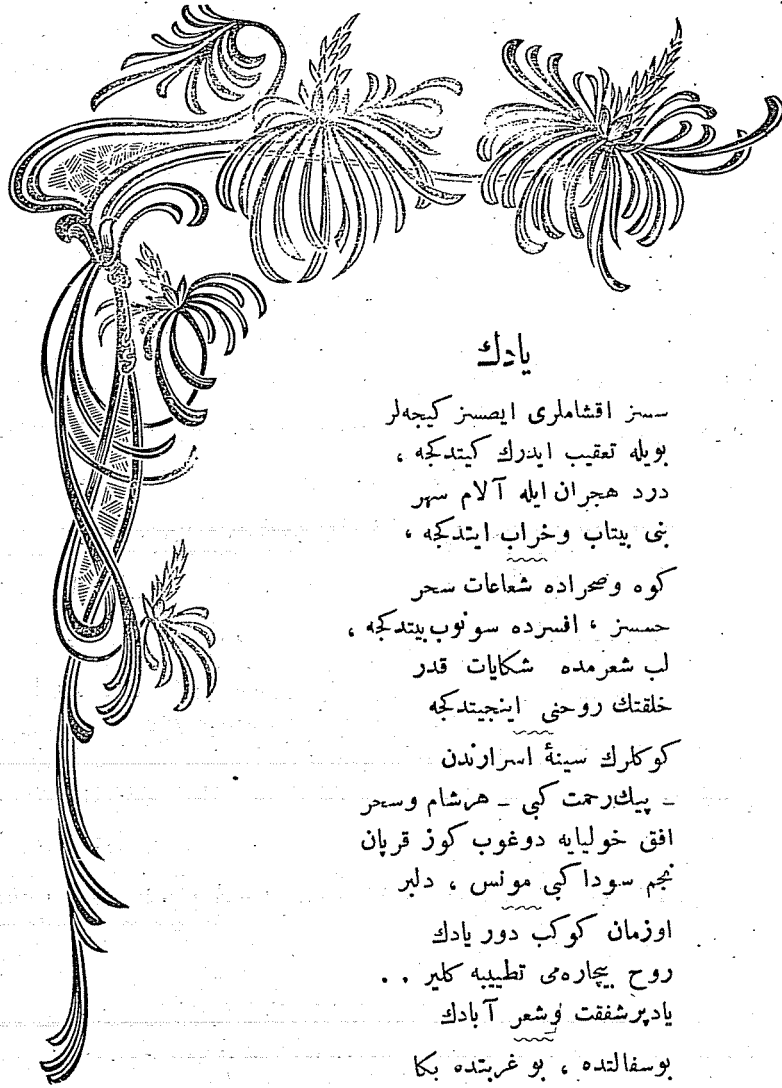 يادك
سسز اقشاملرى ايصسز كيجه‌لر
بويله تعقيب ايدرك كيتدكجه ،
درد هجران ايله آلام سهر
بنى بيتاب وخراب ايتدكجه ،
كوه وصحراده شعاعات سحر
حسسز ، افسرده سونوب بيتدكجه ،
لب شعرمده شكايات قدر
خلقتك روحنى اينجيتدكجه
كوكلرك سينۀ اسرارندن
ـ پيك رحمت كبى ـ هرشام وسحر
افق خوليايه دوغوب كوز قرپان
نجم سودا كبى مونس ، دلبر
اوزمان كوكب دور يادك
روح بيچاره‌مى تطييبه كلير . .
ياد پرشفقت وشعر آبادك
بوسفالتده ، بو غربتده بكا